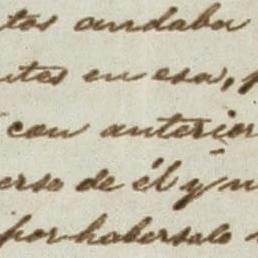 tos andaba
ntes en esa,
con anterior
erso de él y n
por habersalo